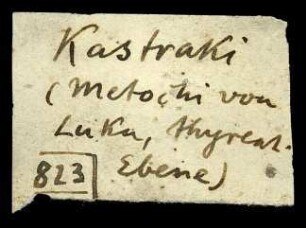 Kastraki
(Metochi von
Luku, thyreat.
Ebene)
823